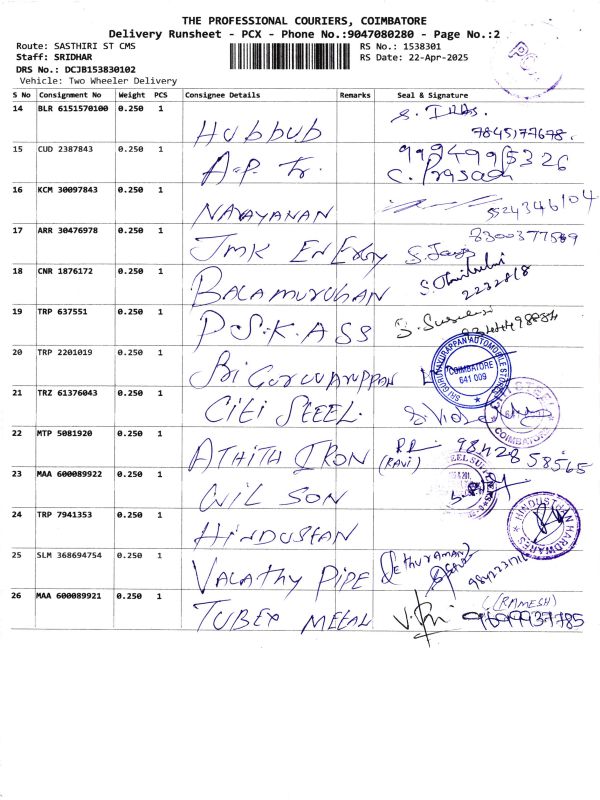 THE PROFESSIONAL COURIERS, COIMBATORE
Delivery Runsheet - PCX - Phone No.:9047080280 - Page No.:2
Route: SASTHIRI ST CMS
RS No.: 1538301
Staff: SRIDHAR
RS Date: 22-Apr-2025
DRS No.: DCJB153830102
Vehicle: Two Wheeler Delivery
S No Consignment No Weight PCS Consignee Details Remarks Seal & Signature
14 BLR 6151570100 0.250 1
Hubbub
7845177678.
15 CUD 2387843 0.250 1
A.P. Tr.
C. Prasad
16 KCM 30097843 0.250 1
NARAYANAN
9524346104
17 ARR 30476978 0.250 1
8300377569
JMK ENERGY
18 CNR 1876172 0.250 1
BALAMURUGAN
2232818
19 TRP 637551 0.250 1
P.S.K.ASS
20 TRP 2201019 0.250 1
Sri Guruvaruppan
SRI GURUVAYURAPPAN AUTOMOBILE STORES
COIMBATORE
641 009
21 TRZ 61376043 0.250 1
Citi STEEL.
CITI STEEL
COIMBATORE
22 MTP 5081920 0.250 1
ATHITH IRON
(RAVI)
98428 58565
23 MAA 600089922 0.250 1
WILSON
24 TRP 7941353 0.250 1
HINDUSTAN
HINDUSTAN HARDWARES
25 SLM 368694754 0.250 1
VALATHY PIPE
(SETHURAMAN)
26 MAA 600089921 0.250 1
TUBEX METAL
(RAMESH)